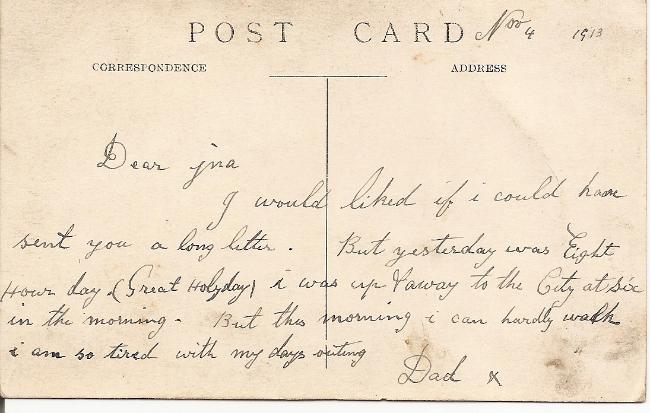 POST CARD Nov 4 1913
CORRESPONDENCE ADDRESS
Dear jna
I would liked if i could have
sent you a long letter. But yesterday was Eight
Hour day. (Great Holyday) i was up & away to the City at six
in the morning. But this morning i can hardly walk
i am so tired with my days outing
Dad x